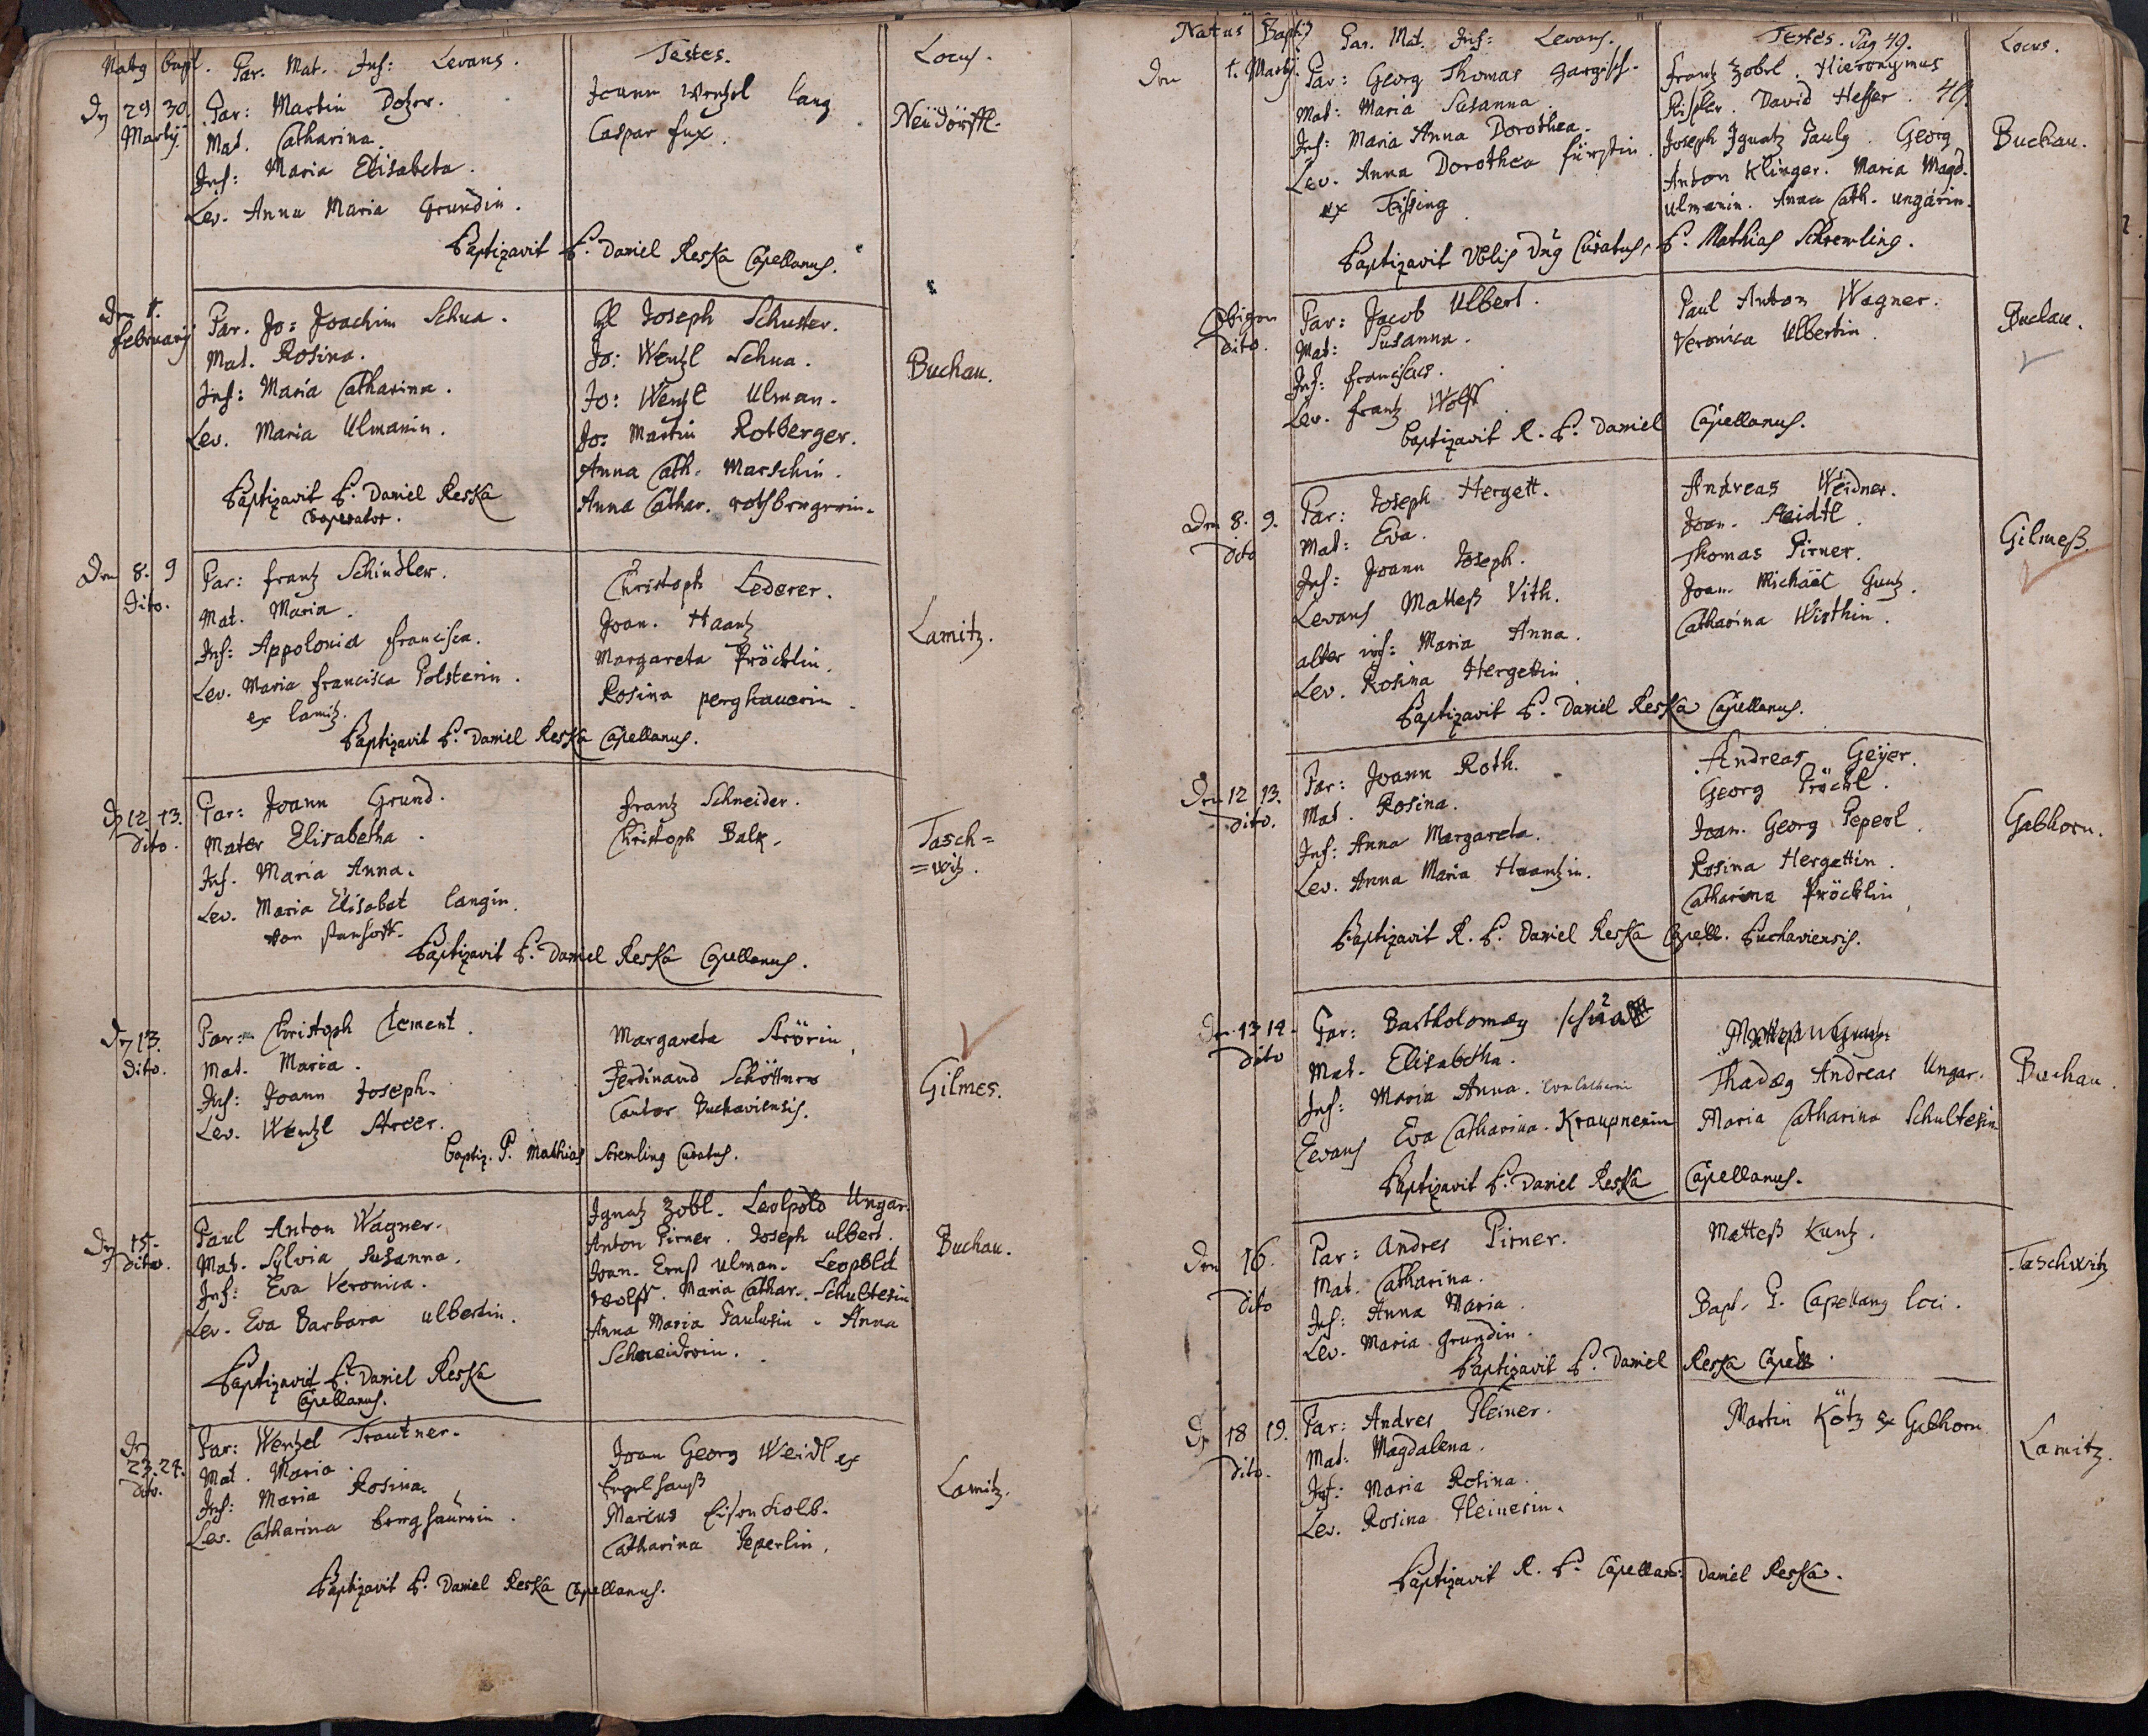 Natg bapt. Par. Mat. Inf: Levans. Testes. Locus.
Dr 29 30. Par: Martin Dozer. Joann Wentzel lang Neüdörffl.
Martij. Mat. Catharina. Caspar fux.
Inf: Maria Elisabeta.
Lev. Anna Maria Grundin.
Baptizavit P. Daniel Reska Capellanus.
Den 1. Par. Jo: Joachim Schua. Joseph Schuster. Buchau.
february Mat. Rosina. Jo: Wentzl Schua.
Inf: Maria Catharina. Jo: Wentzl Ulman.
Lev. Maria Ulmanin. Jo: Martin Rotberger.
Anna Cath. Marschin.
Baptizavit P. Daniel Reska Anna Cathar. rothbergerin.
Cooperator.
Den 8. 9 Par: frantz Schindler. Christoph Lederer. Lamitz.
Dito. Mat. Maria. Joan. Haantz
Inf: Appolonia francisca. Margareta Pröcklin.
Lev. Maria francisca Polsterin. Rosina perghauerin.
ex lamitz.
Baptizavit P. Daniel Reska Capellanus.
D 12 13. Par: Joann Grund. frantz Schneider. Tasch=
Dito. Mater Elisabetha. Christoph Balk. =witz.
Inf. Maria Anna.
Lev. Maria Elisabet langin.
von
Baptizavit P. Daniel Reska Capellanus.
Dr 13. Par: Christoph Clement. Margareta Strörin, Gilmes.
Dito. Mat. Maria. Ferdinand Schöttner
Inf: Joann Joseph. Cantor Buchaviensis.
Lev. Wentzl Streer.
Baptiz. P. Mathias Scremling Curatus.
Dr 15. Paul Anton Wagner. Ignatz Zobl. Leolpold Ungar. Buchau.
Dito. Mat. Sylvia Susanna. Anton Pirner. Joseph ulbert.
Inf: Eva Veronica. Joan. Ernst Ulman. Leopold
Lev. Eva Barbara ulbertin. wolff. Maria Cathar. Schultesin
Anna Maria Paulusin. Anna
Baptizavit P. Daniel Reska Schneiderin.
Capellanus.
Dr 23. 24. Par: Wentzel Trautner. Joan Georg Weidl ex Lamitz.
Dito. Mat. Maria. Engelhauß
Inf: Maria Rosina. Marcus Eisenkolb.
Lev. Catharina berghäürin. Catharina Peperlin.
Baptizavit P. Daniel Reska Capellanus.
Natus Baptis Par. Mat. Inf: Levans. Testes. Pag 49. Locus.
Den 1. Martij. Par: Georg Thomas frantz Zobel. Hieronymus
Mat: Maria Susanna. David Heßer. 49
Inf: Maria Anna Dorothea. Joseph Ignatz Paulg. Georg Buchau.
Lev. Anna Dorothea fürstin. Anton Klinger. Maria Magd.
ex Teising Ulmanin. Anna Cath. ungarin.
Baptizavit Dng Curatus, P. Mathias Schremling.
Obigen Par: Jacob Ulbert. Paul Anton Wagner. Buchau.
Dito. Mat: Susanna. Veronica Ulbertin.
Inf: franciscus.
Lev. frantz Wolff
baptizavit R. P. Daniel Capellanus.
Den 8. 9. Par: Joseph Hergett. Andreas Weidner. Gilmeß.
Dito Mat: Eva. Joan.
Inf: Joann Joseph. Thomas Pirner.
Levans Matteß Vith. Joan. Michäel Guntz.
alter inf: Maria Anna. Catharina Wirthin.
Lev. Rosina Hergettin
Baptizavit P. Daniel Reska Capellanus.
Den 12 13. Par: Joann Roth. Andreas Geijer. Gabhorn.
Dito. Mat. Rosina. Georg Pröckl.
Inf: Anna Margareta. Joan. Georg Peperl.
Lev. Anna Maria Haantzin. Rosina Hergettin.
Catharina Pröcklin,
Baptizavit R. P. Daniel Reska Capell. Buchaviensis.
Den 13 14. Par: Bartholomæg Schua Buchau.
Dito Mat. Elisabetha. Thadæg Andreas Ungar.
Inf: Maria Anna. Eva Catharin Maria Catharina Schultesin
Levans Eva Catharina Kraupnerin
Baptizavit P. Daniel Reska Capellanus.
Den 16. Par: Andres Pirner. Matteß Kuntz. Taschwitz
Dito Mat. Catharina.
Inf: Anna Maria. Bapt. P. Capellang loci.
Lev. Maria grundin.
Baptizavit P. Daniel Reska Capell.
D 18 19. Par: Andres Pleiner. Martin Kötz ex Gabhorn Lamitz.
Dito. Mat: Magdalena.
Inf: Maria Rosina.
Lev. Rosina Pleinerin.
Baptizavit R. P. Capellan: Daniel Reska.